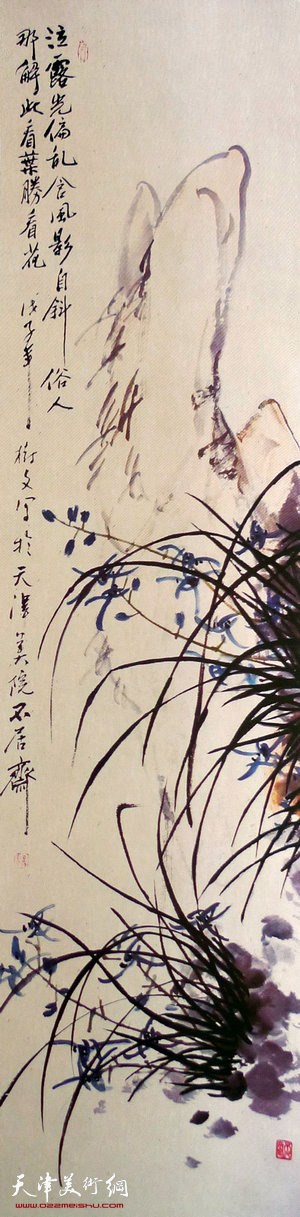 泣露光偏乱含风影自斜俗人
那解此看葉勝看花 戊子年 樹文写於天津美院不居齋
天津美術網
www.022meishu.com